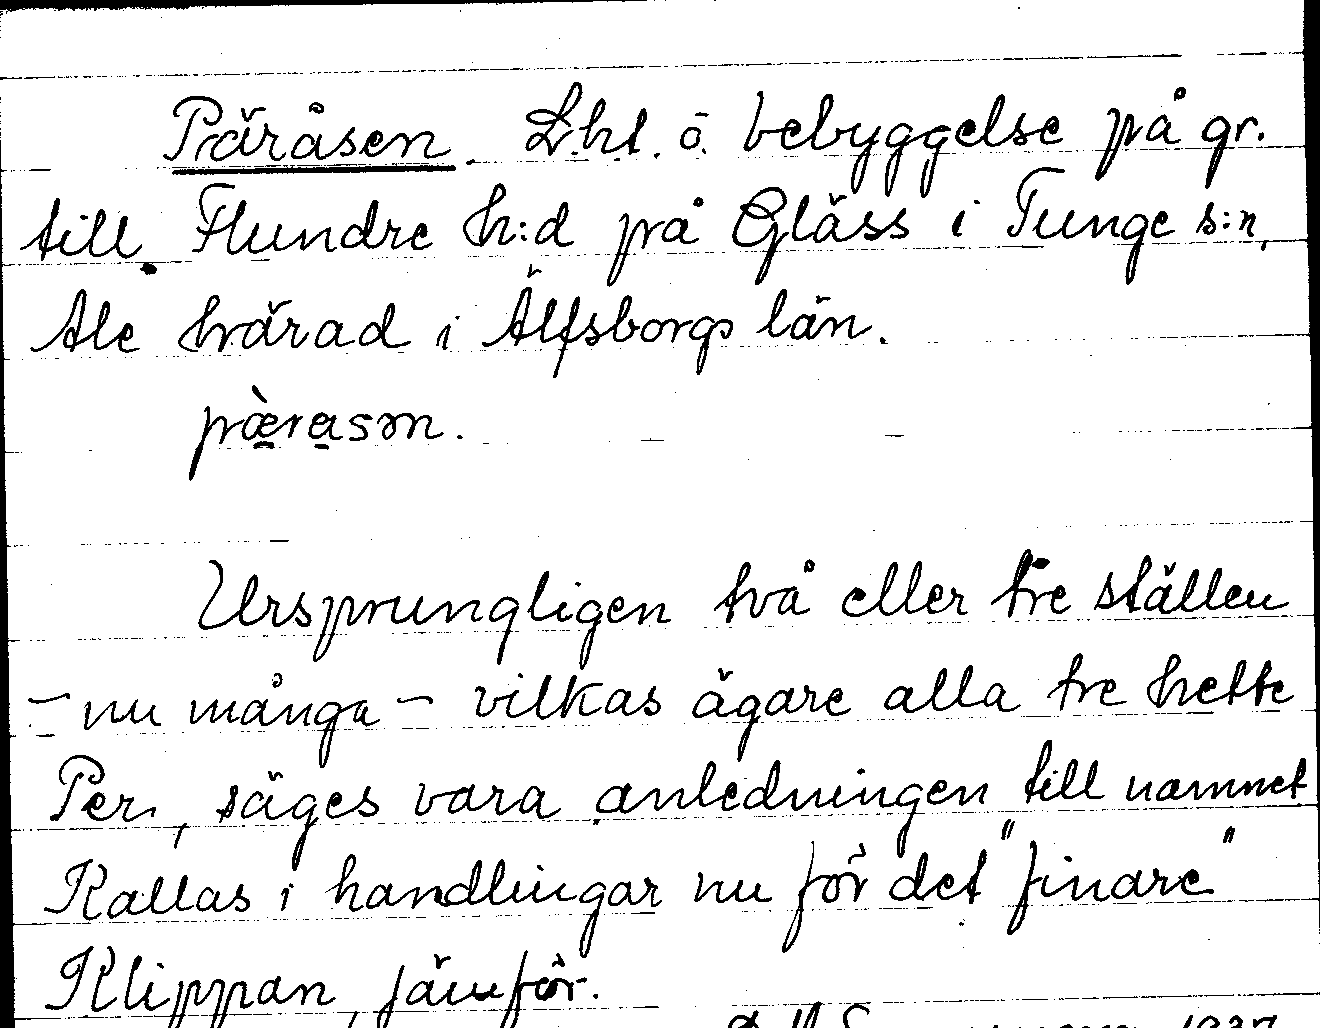 Päråsen. L.ht. o. bebyggelse på gr.
till Flundre h:d på Gläss i Tunge s:n,
Ale härad i Älfsborgs län.
pæ̀rasən.
Ursprungligen två eller tre ställen
– nu många – vilkas ägare alla tre hette
Per, säges vara anledningen till namnet
Kallas i handlingar nu för det "finare"
Klippan, jämför.
1937